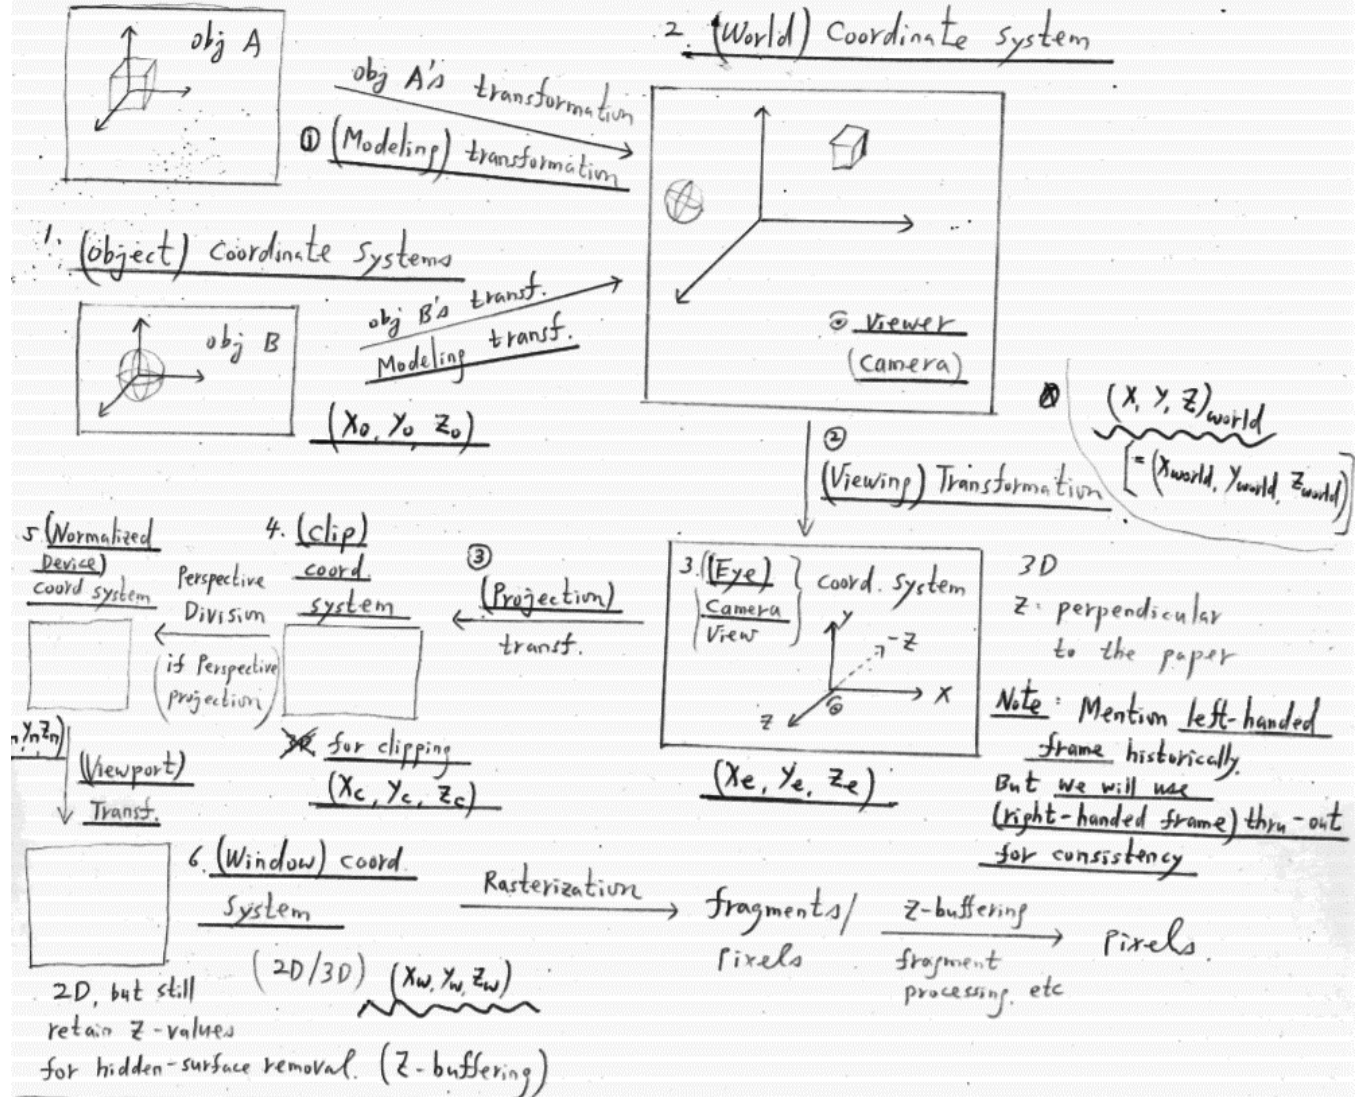 obj A
obj A's transformation
① (Modeling) transformation
2. (World) Coordinate System
1. (object) Coordinate Systems
obj B
obj B's transf.
Modeling transf.
(Xo, Yo, Zo)
Viewer
(Camera)
(X, Y, Z)world
[= (Xworld, Yworld, Zworld)]
②
(Viewing) Transformation
3. (Eye) coord. system
Camera
View
Y
-Z
X
Z
(Xe, Ye, Ze)
3D
Z: perpendicular
to the paper
Note: Mention left-handed
frame historically.
But we will use
(right-handed frame) thru-out
for consistency
③
(Projection)
transf.
4. (clip)
coord.
system
for clipping
(Xc, Yc, Zc)
Perspective
Division
(if Perspective
projection)
5. (Normalized
Device)
coord system
, Yn, Zn)
(Viewport)
Transf.
6. (Window) coord.
System
(2D/3D) (Xw, Yw, Zw)
2D, but still
retain Z-values
for hidden-surface removal. (Z-buffering)
Rasterization
fragments/
pixels
Z-buffering
fragment
processing, etc
pixels.